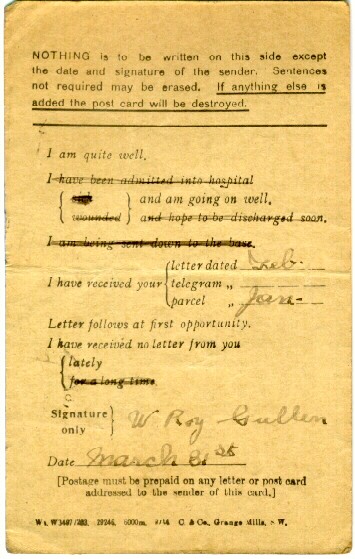 NOTHING is to be written on this side except
the date and signature of the sender. Sentences
not required may be erased. If anything else is
added the post card will be destroyed.
I am quite well.
I have been admitted into hospital
sick and am going on well.
wounded and hope to be discharged soon.
I am being sent down to the base.
letter dated Feb
I have received your telegram „
parcel „ Jan
Letter follows at first opportunity.
I have received no letter from you
lately
for a long time.
Signature
only
W Roy Gullen
Date March 31st
[Postage must be prepaid on any letter or post card
addressed to the sender of this card.]
Wt. W3497/293. 29246. 6000m. 9/16 C. & Co., Grange Mills, S.W.